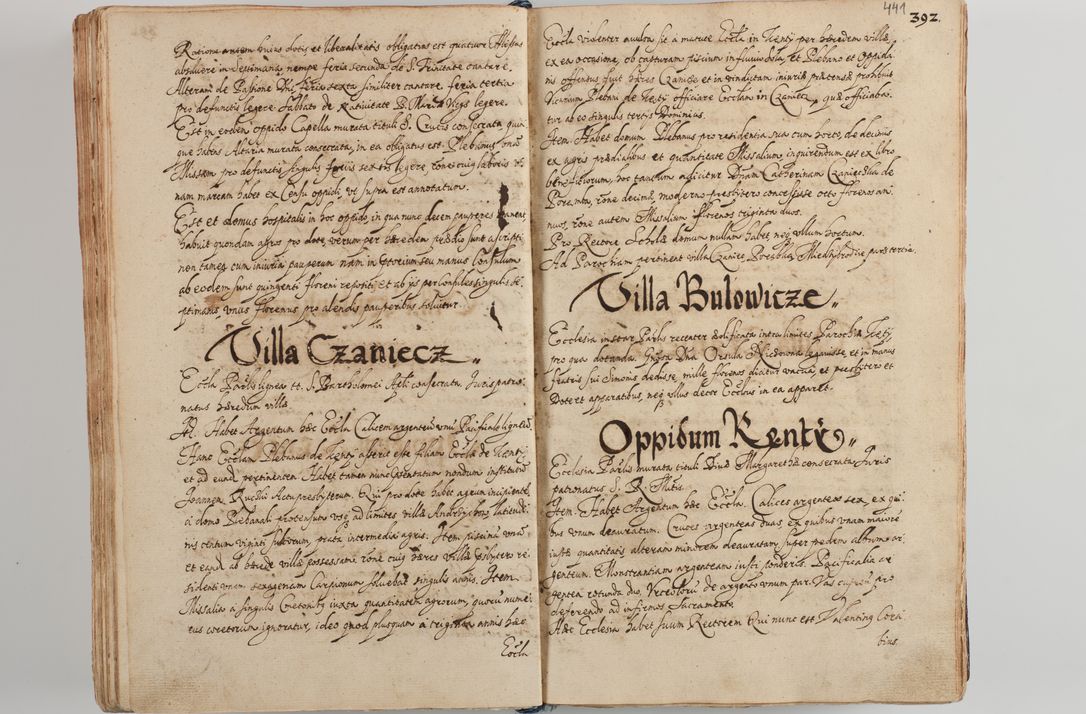 Ratione autem huius dotis, et liberalitatis obligatus est quatuor Missas
absoluere in septimana, nempe feria secunda de S. Trinitate cantare.
Alteram de Passione Dni feria sexta similiter cantare. feria tertia
pro defunctis legere. Sabbato de Natiuitate B. Mariæ Virgs legere.
Est in eodem oppido Capella murata tituli S. Crucis consecrata, quin
que habens Altaria murata consecrata, in ea obligatus est Plebanus
Missam pro defunctis singulis feriis sextis legere, rone cuius laboris
nam marcam habet ex Censu oppidi, vt supra est annotatum.
Est et domus hospitalis in hoc oppido, in qua nunc decem pauperes manent
habuit quondam agros pro dote, verum per hæredem prædio sunt ascripti
non tamen cum iniuria pauperum nam in Prætorium seu manus Consulum
ab eodem sunt quingenti floreni repositi, et ab ijs per consules singulis se
ptimanis vnus florenus pro alendis pauperibus soluitur.
Villa Czaniecz
Eccla Parlis lignea tt. S. Bartholomei Apli consecrata. Iuris patro
natus hæredum villæ.
Habet Argentum hæc Eccla Calicem argenteum vnum Pacificale ligneum
Hanc Ecclam Plebanus de Kenty asserit esse filiam Ecclæ de Kenty
et ad eund. pertinentem. Habet tamen nunc Commendatum nondum institutum
Joannem Actu presbyterum. Qui pro dote habet agrum incipientem
à domo Plebanali protensum vsq ad limites villæ latitudi
nis centum viginti sulcorum, prata intermedia agris. Item piscinam vnam
et eand. ab hærede villæ possessam, rone cuius hæres villæ presbytero re
sidenti vnam sexagenam Carpionum soluebat singulis annis. Item
Missalia à singulis Cmetonibus iuxta quantitatem agrorum, quorū nume:
rus coretorum ignoratur, ideo quod plusquam à triginta annis hæc
Eccla
441
392.
Eccla violenter auulsa sit a matrice Eccla in Kenty per hæredem villæ,
ex ea occasione, ob capturam piscium in fluuio Sola, et Plebano et Oppida
nis offensus fuit hæres Czaniecze et in vindictam iniuriæ prætensæ prohibuit
Vicarium Plebani de Kenty officiare Ecclam in Czaniecz, quæ officiaba:
tur ab eo singulis tertijs Dominicis.
Item. Habet domum Plebanus pro residentia sua cum horto, de decimis
ex agris prædialibus et quantitate Missalium, inquirendum est ex libro
beneficiorum, hoc tantum adijcitur Dnam Catherinam Czaniecska de
Poremba, rone decimæ, moderno presbitero concessisse octo florenos an:
nuos, rone autem Missalium florenos triginta duos.
Pro Rectore Scholæ domum nullam habet neq vllum hortum.
Ad Parochiam pertinent villa Czaniec, Porabka, pars tertia.
Villa Bulowicze
Ecclesia instar Parlis recenter ædificata intra limites Parochiæ Kenty,
pro qua dotanda Dna Orsula legauisse, et in manus
fratris sui Simonis dedisse mille florenos dicitur vacua, et presbitero et
Dote et apparatibus, neq vllus decor Ecclsus in ea apparet.
Oppidum Kenty
Ecclesia Parlis murata tituli Diuæ Margarethæ consecrata Iuris
patronatus S. R. Mttis.
Item. Habet Argentum hæc Eccla. Calices argenteos sex, ex qui:
bus vnum deauratum. Cruces argenteas duas, ex quibus vnam maioré
iustæ quantitatis alteram minorem deauratam, super pedem album ar
genteum. Monstrantiam argenteam iusti ponderis. Pacificalia ar
gentea rotunda duo. Vrceolorū de argento vnum par. Vas cupreū pro
deferendo ad infirmos Sacramento.
Hæc Ecclesia habet suum Rectorem Qui nunc est Valentinus Cora
bius.